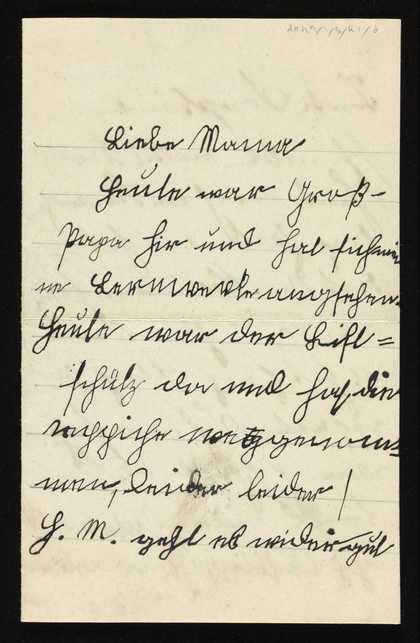 Liebe Mama
Heute war Groß-
papa hir und hat sich mei
ne angesehen.
Heute war der Lift=
schütz da und hat die
Teppiche weggenom=
men, leider leider!
H. M. geht es wider gut